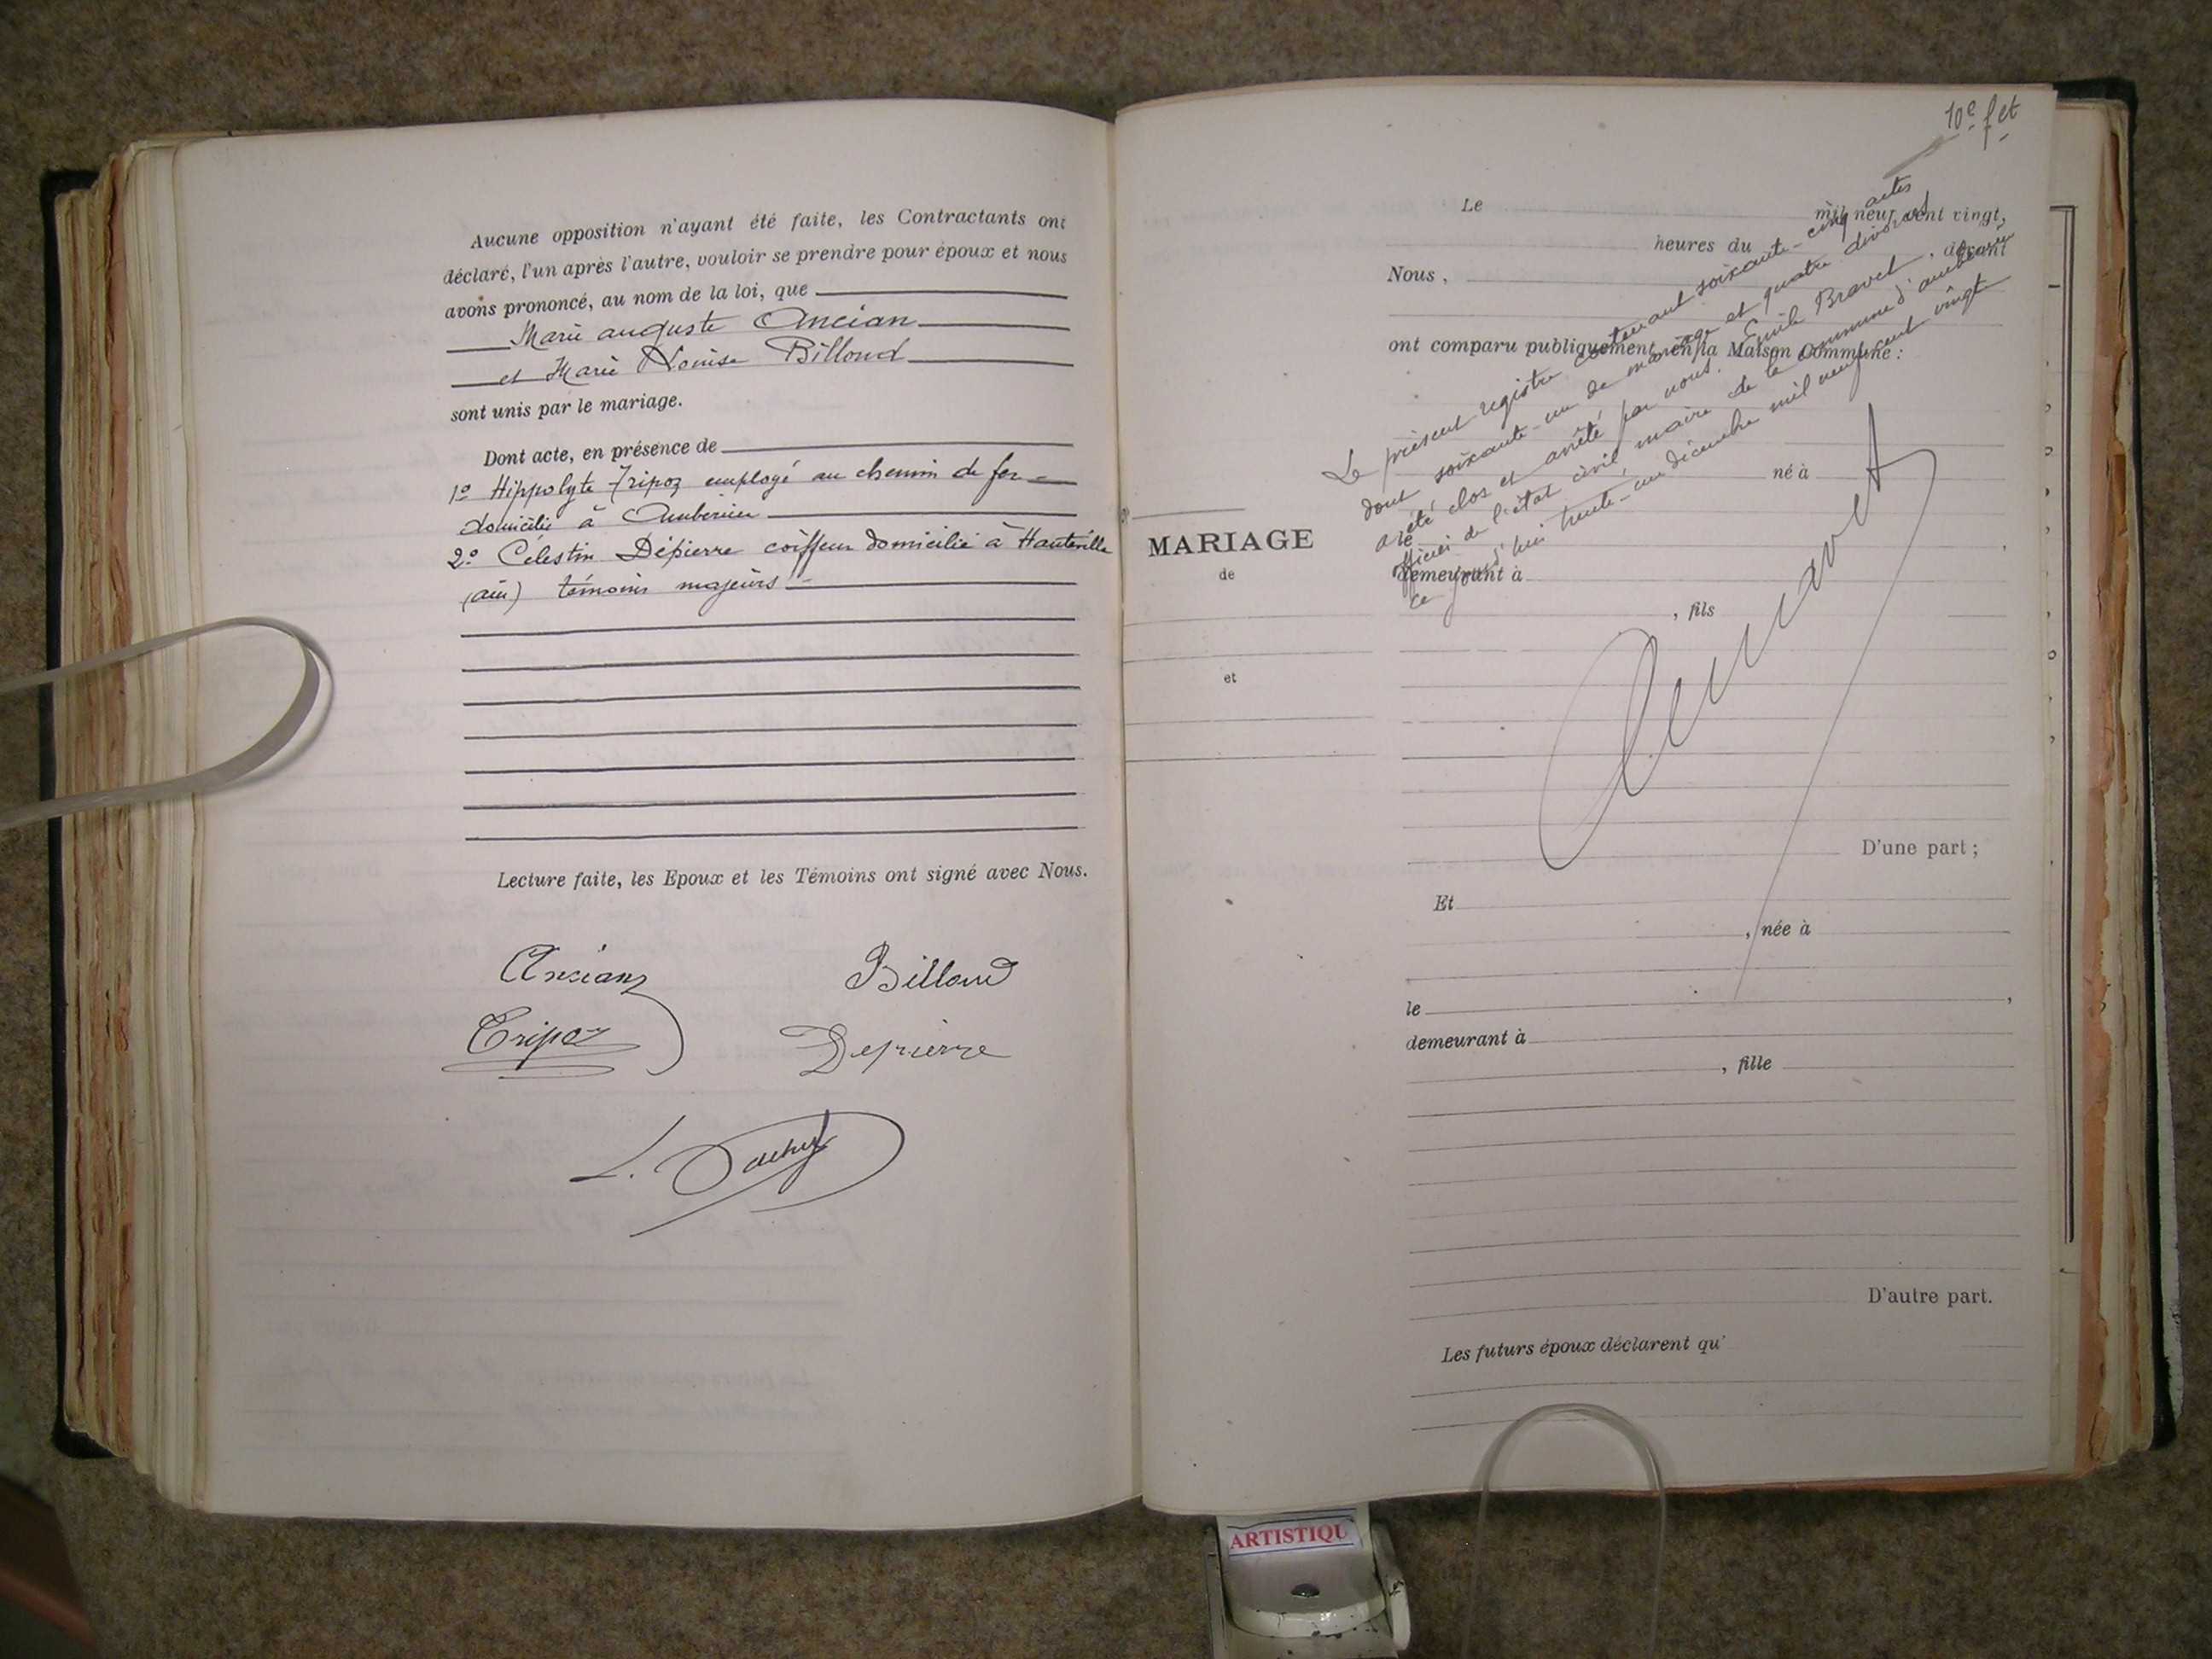 Aucune opposition n'ayant été faite, les Contractants ont
déclaré, l'un après l'autre, vouloir se prendre pour époux et nous
avons prononcé, au nom de la loi, que
Marie auguste Ancian
et Marie Louise Billoud
sont unis par le mariage.
Dont acte, en présence de
1º Hippolyte Tripoz employé au chemin de fer
domicilié à Ambérieu
2º Célestin Dépierre coiffeur domicilié à Hauteville
(ain) témoins majeurs
Lecture faite, les Epoux et les Témoins ont signé avec Nous.
Ancian
Billoud
Tripoz
Depierre
L.
10e fet
MARIAGE
de
et
Le
mil neuf cent vingt,
heures du
Nous,
, devant
ont comparu publiquement en la Maison Commune :
né à
demeurant à
, fils
D'une part ;
Et
, née à
le
demeurant à
, fille
D'autre part.
Les futurs époux déclarent qu'
Le présent registre contenant soixante-cinq actes
dont soixante-un de mariage et quatre divorces
a été clos et arrêté par nous, Emile Bravet,
officier de l'état civil, maire de la commune d'ambérieu
ce jourd'hui trente-un décembre mil neuf cent vingt
Bravet
ARTISTIQU